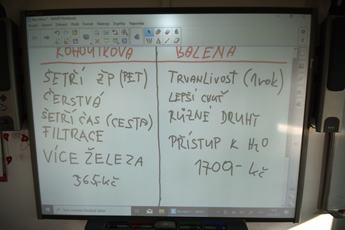 KOHOUTKOVÁ
ŠETŘÍ ŽP (PET)
ČERSTVÁ
ŠETŘÍ ČAS (CESTA)
FILTRACE
VÍCE ŽELEZA
365,-kč
BALENÁ
TRVANLIVOST (1 rok)
LEPŠÍ CHUŤ
RŮZNÉ DRUHY
PŘÍSTUP K H2O
1700,- kč